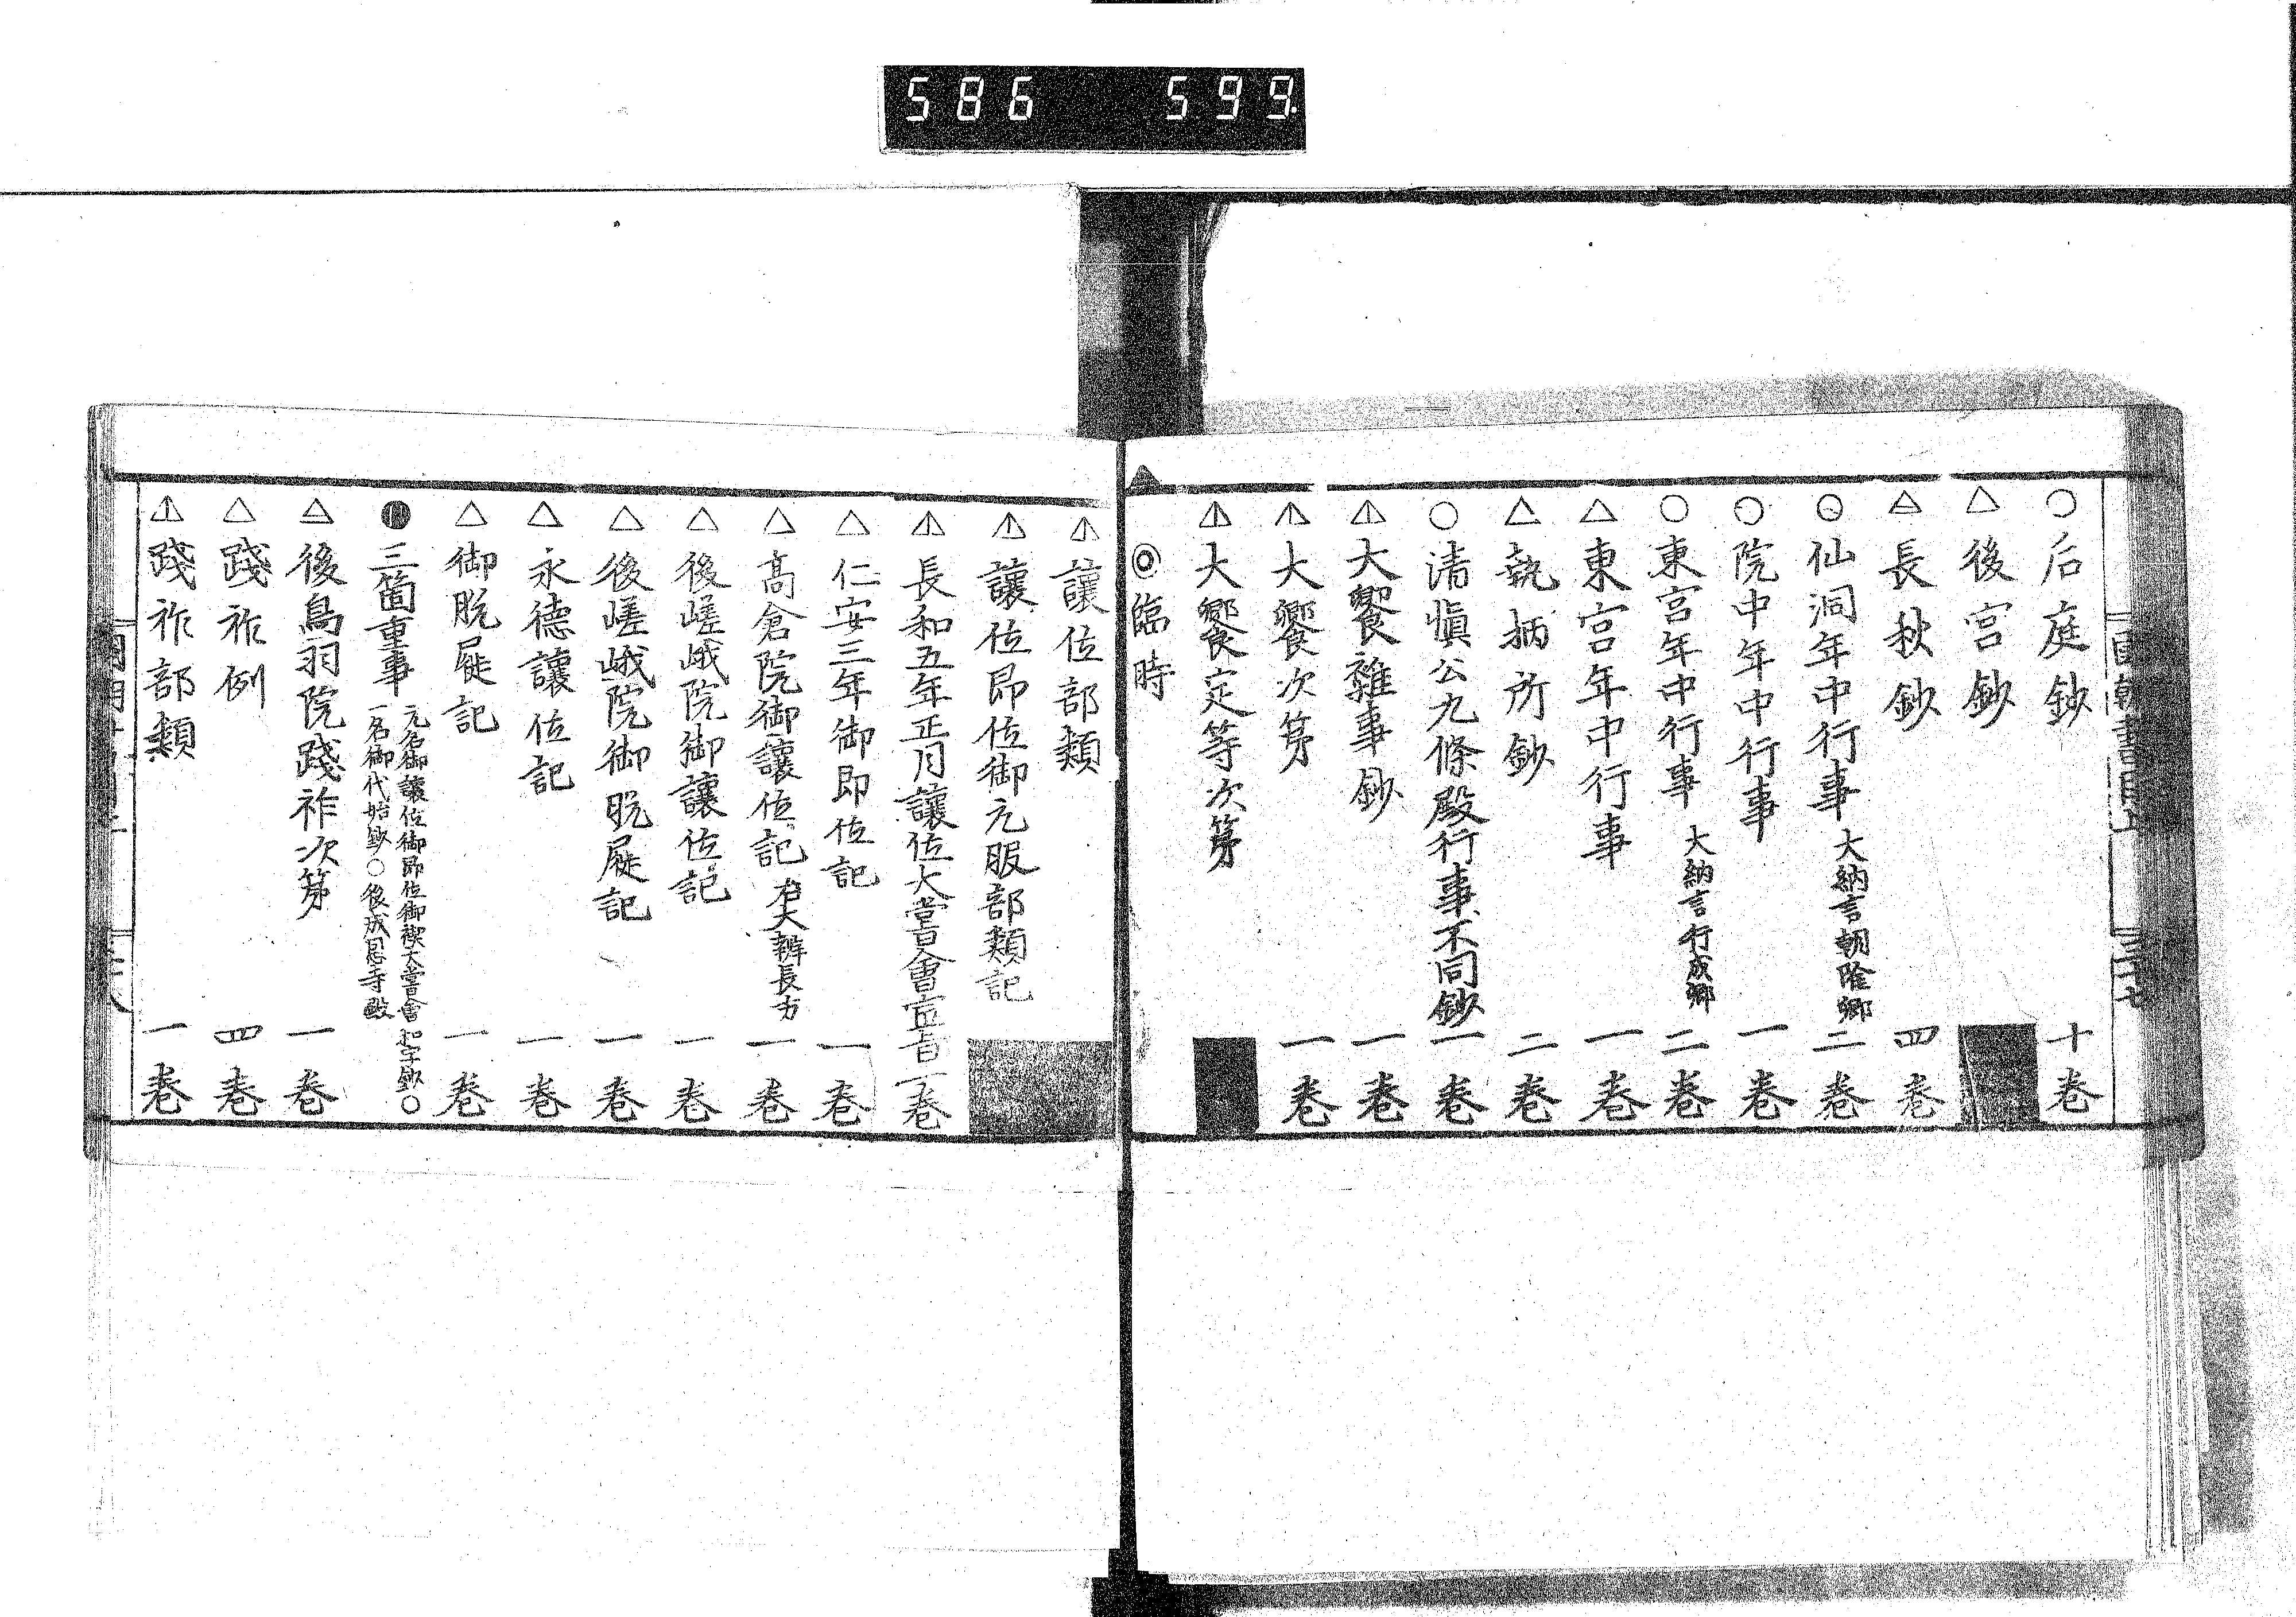 586 599.
○后庭鈔 十卷
△後宮鈔
△長秋鈔 四卷
○仙洞年中行事 大納言朝隆卿 二卷
○院中年中行事 一卷
○東宮年中行事 大納言行成卿 二卷
△東宮年中行事 一卷
△執柄所鈔 二卷
○清愼公九條殿行事不同鈔 一卷
△大饗雜事鈔 一卷
△大饗次第 一卷
△大饗定等次第
◎臨時
△讓位部類
△讓位即位御元服部類記
△長和五年正月讓位大嘗會宣旨 一卷
△仁安三年御即位記 一卷
△高倉院御讓位記 右大辨長方 一卷
△後嵯峨院御讓位記 一卷
△後嵯峨院御脱屣記 一卷
△永德讓位記 一卷
△御脱屣記 一卷
三箇重事 元名御讓位御即位御禊大嘗會和字鈔○
一名御代始鈔○後成恩寺殿
△後鳥羽院踐祚次第 一卷
△踐祚例 四卷
△踐祚部類 一卷